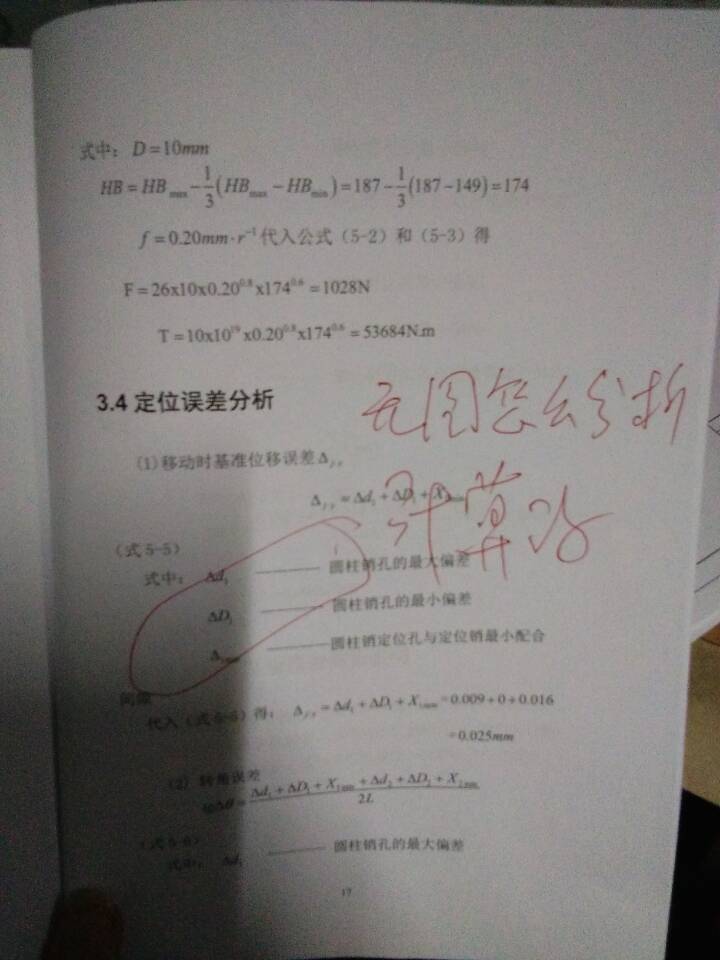 式中：D=10mm
HB=HB max − 1/3 (HB max − HB min) = 187 − 1/3 (187−149) = 174
f = 0.20mm·r⁻¹ 代入公式（5-2）和（5-3）得
F=26x10x0.20^0.8 x174^0.6 =1028N
T=10x10^19 x0.20^0.8 x174^0.6 =53684N.m
3.4 定位误差分析
无图怎么分析
(1)移动时基准位移误差Δjy
Δjy = Δd1 + ΔD1 + X1min
计算
（式5-5）
式中： Δd1 ——— 圆柱销孔的最大偏差
ΔD1 ——— 圆柱销孔的最小偏差
——— 圆柱销定位孔与定位销最小配合
间隙
代入（式5-5）得： Δjy = Δd1 + ΔD1 + X1min = 0.009+0+0.016
=0.025mm
（2）转角误差
tgΔθ = (Δd1 + ΔD1 + X1min + Δd2 + ΔD2 + X2min) / 2L
（式5-6）
式中： Δd1 ——— 圆柱销孔的最大偏差
17